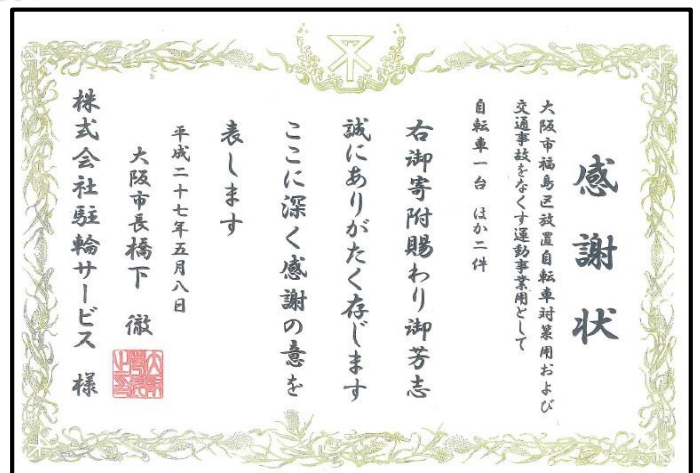 感謝状
大阪市福島区放置自転車対策用および
交通事故をなくす運動事業用として
自転車一台 ほか二件
右御寄附賜わり御芳志
誠にありがたく存じます
ここに深く感謝の意を
表します
平成二十七年五月八日
大阪市長 橋下 徹
株式会社駐輪サービス 様